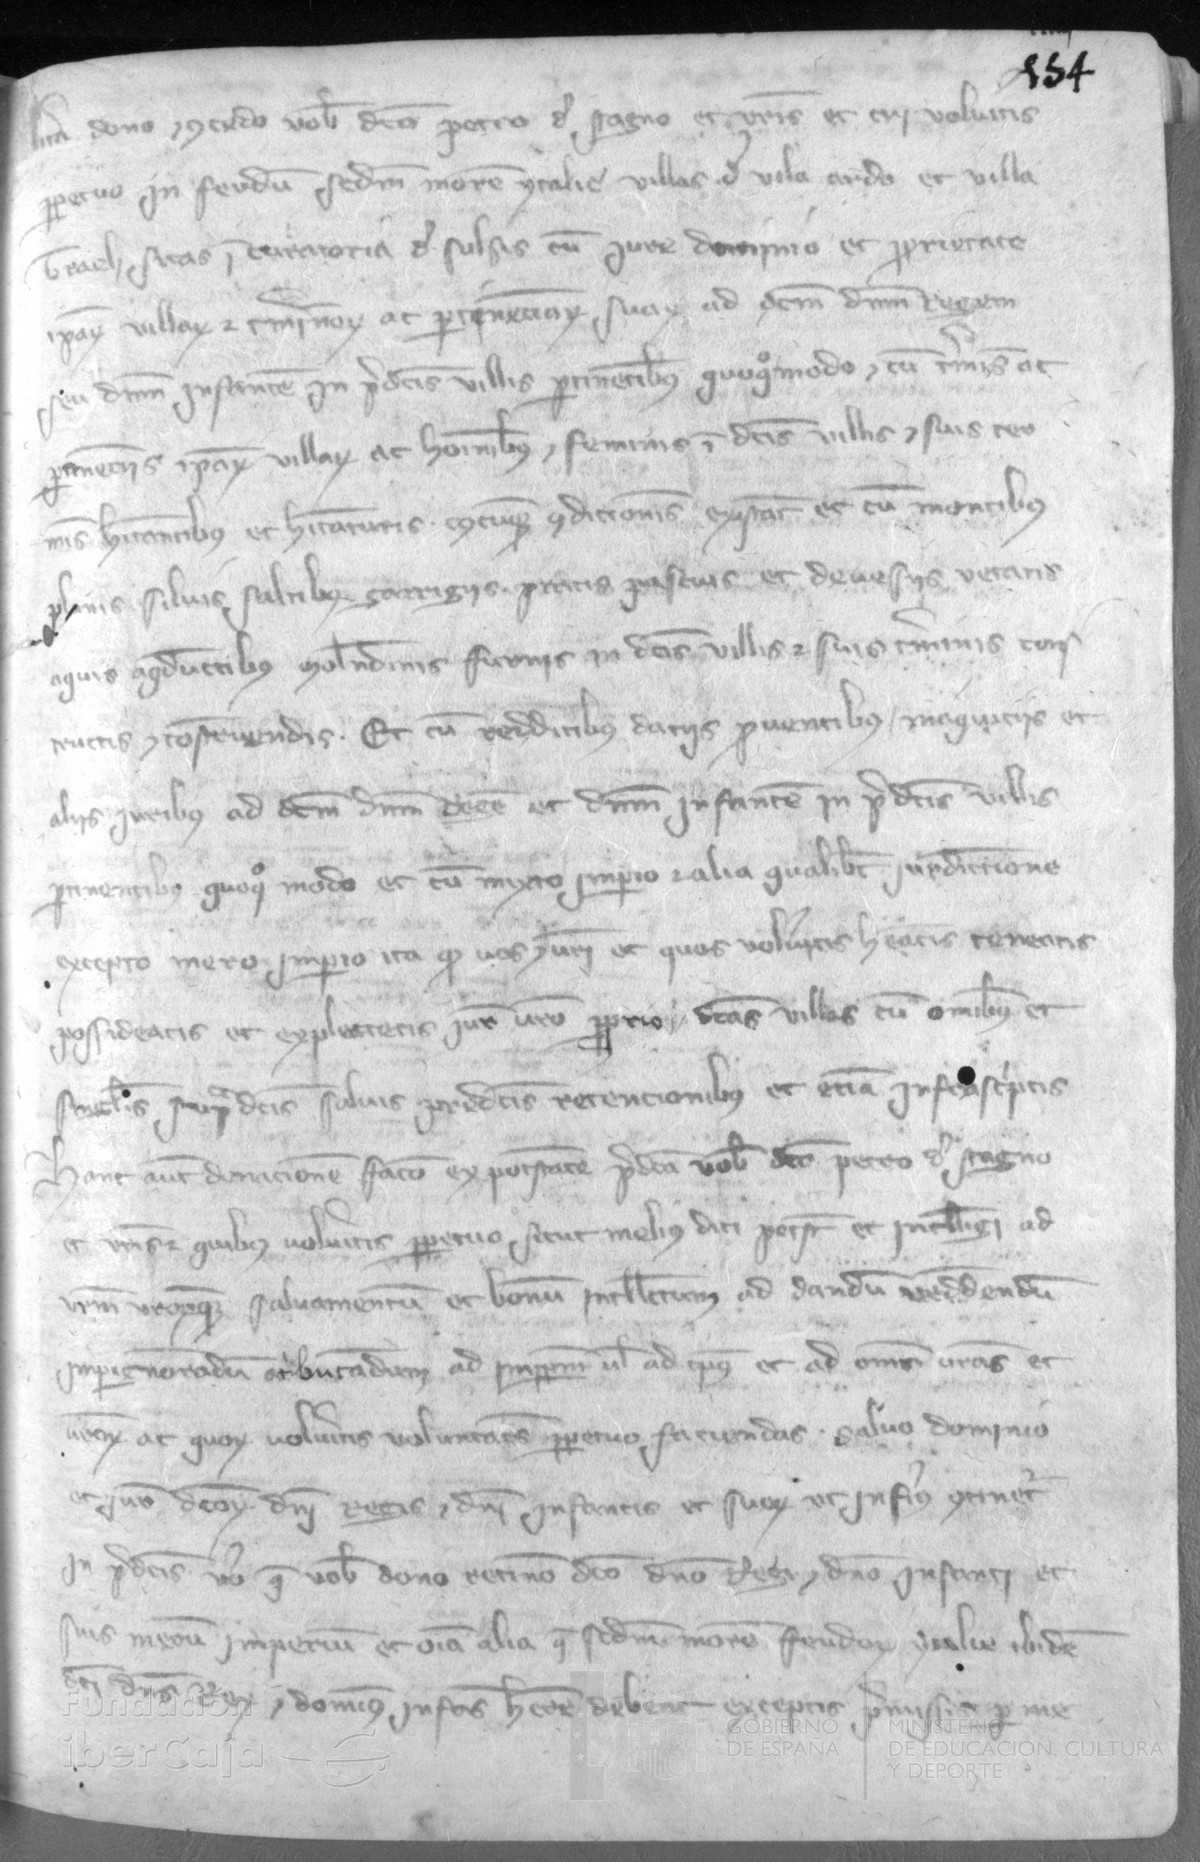 154
dono et concedo vobis dicto petro de stagno et vestris et cui volueritis
perpetuo in feudum secundum morem ytalie villas de vila ardo et villa
sitas in de sulsis cum jure dominio et proprietate
ipsarum villarum et terminorum ac pertinenciarum suarum ad dictum dominum Regem
seu dominum infantem in predictis villis pertinentibus quoquomodo et cum terminis ac
pertinenciis ipsarum villarum ac hominibus et feminis in dictis villis et suis ter
minis habitantibus et habitaturis cuiuscumque condicionis existant et cum montibus
planis silvis saltibus garrigiis pratis pascuis et devesiis vetatis
aquis aqueductibus molendinis furnis in dictis villis et suis terminis cons
tructis et construendis. Et cum redditibus daciis proventibus et
aliis juribus ad dictum dominum Regem et dominum infantem in predictis villis
pertinentibus quoquo modo et cum mixto imperio et alia qualibet jurisdictione
excepto mero imperio ita quod vos et vestri et quos volueritis habeatis teneatis
possideatis et expletetis jure vestro proprio dictas villas cum omnibus et
singulis supradictis salvis predictis retencionibus et etiam infrascriptis
Hanc autem donacionem facio ex potestate predicta vobis dicto petro de stagno
et vestris et quibus volueritis perpetuo sicut melius dici potest et intelligi ad
vestrum vestrorumque salvamentum et bonum intellectum ad dandum vendendum
impignorandum ad imperpetuum vel ad tempus et ad omnes vestras et
vestrorum ac quorum volueritis voluntates perpetuo faciendas. Salvo dominio
et jure dictorum domini Regis et domini infantis et suorum ut inferius continetur
In predictis vero que vobis dono retineo dicto domino Regi et domino infanti et
suis merum imperium et omnia alia que secundum morem feudorum ytalie ibidem
dicti dominus Rex et dominus infans habere debent exceptis premissis per me
Fundación
iberCaja
GOBIERNO
DE ESPAÑA
MINISTERIO
DE EDUCACIÓN, CULTURA
Y DEPORTE